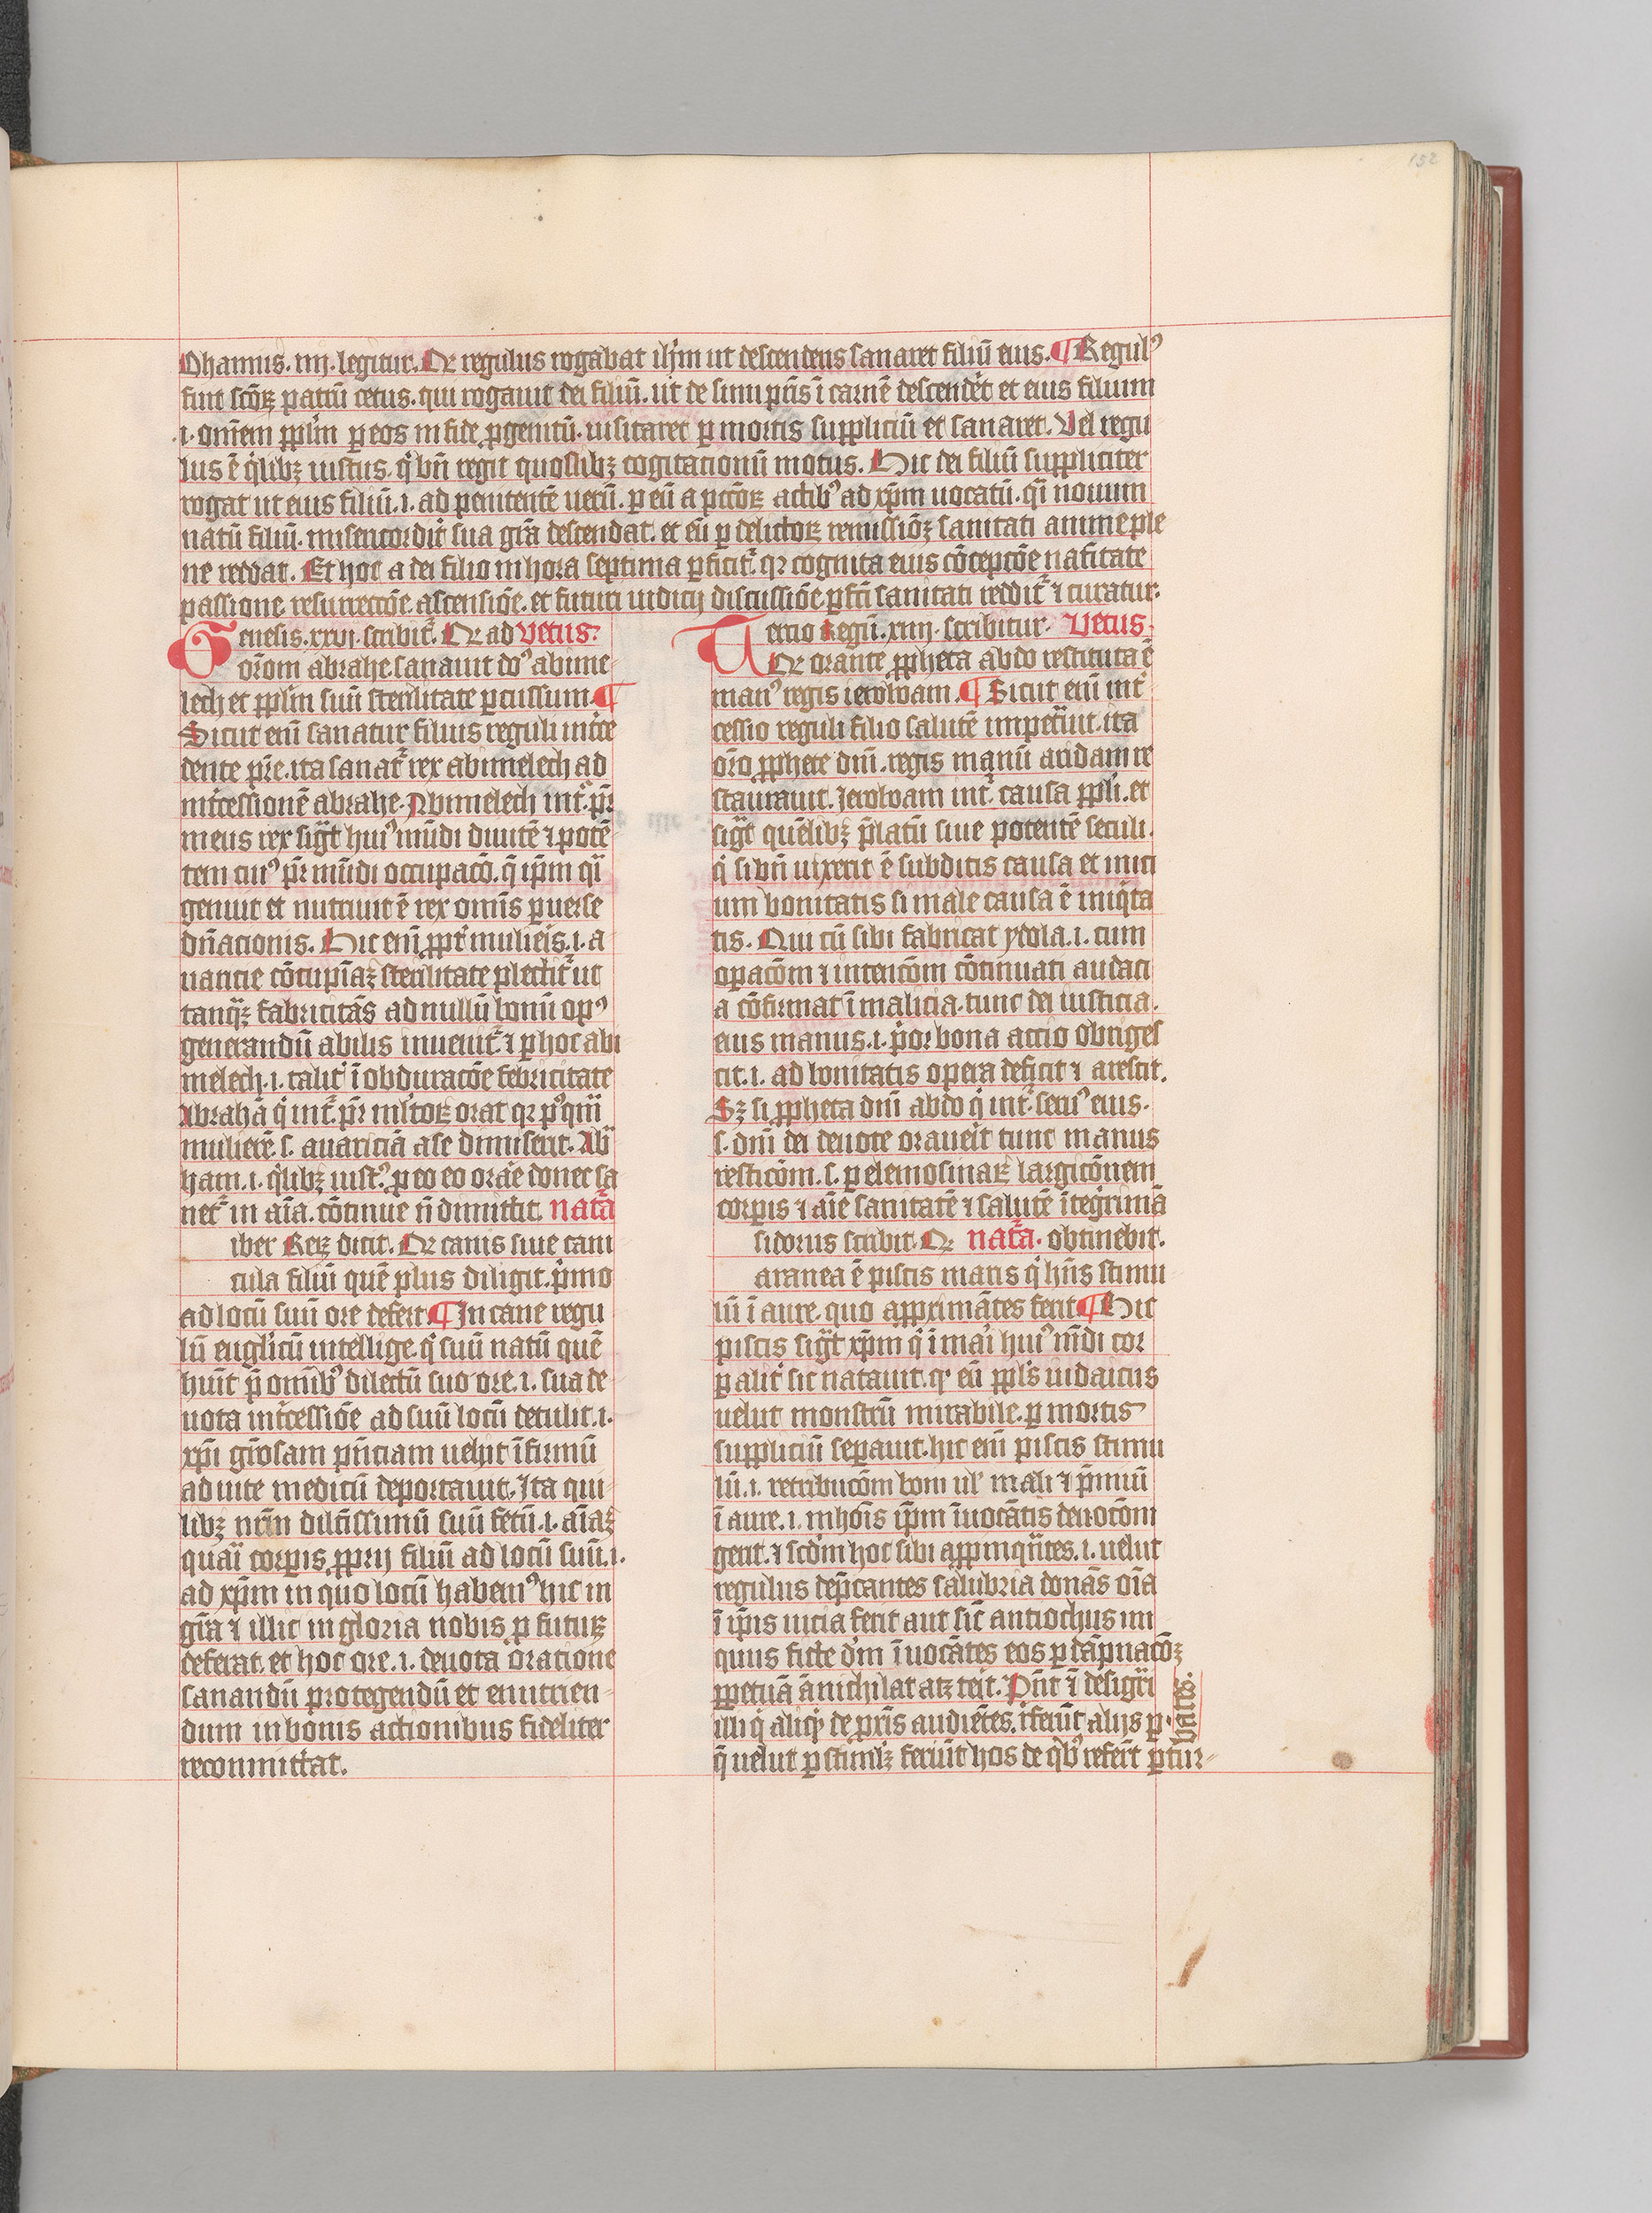 152
Ohannis. iiij. legitur. Qꝛ regulus rogabat ih̄m ut descendens sanaret filiū eius. ¶ Regulꝰ
fuit sc̄oꝝ patrū cetus. qui rogauit dei filiū. ut de sinu pr̄is ī carnē descend̄et et eius filium
.i. om̄em ppl̄m ꝑ eos in fide ꝓgenitū. uisitaret ꝑ mortis suppliciū et sanaret. Vel regu
lus ē q̄libꝫ iustus. q̄ bn̄ regit quoslibꝫ cogitationū motus. Hic dei filiū suppliciter
rogat ut eius filiū .i. ad penitentē uetū. ꝑ eū a pcc̄oꝝ actibꝰ ad xp̄m uocatū. q̄i nouum
natū filiū. misericordit̄ sua gr̄a descendat. et eū ꝑ delictoꝝ remissiōꝫ sanitati anime ple
ne reddat. Et hoc a dei filio in hora septima ꝑficit᷑. qꝛ cognita eius cōcepcōe natiitate
passione resurrecc̄oe. ascensiōe. et futuri iudicij discussiōe ꝑfc̄i sanitati reddit᷑ ⁊ curatur.
Genesis. xxvj. scribit᷑. Qꝛ ad Vetus.
or̄om abrahe sanauit dōs abime-
lech et ppl̄m suū sterilitate ꝑcussum. ¶
Sicut eni sanatur filius reguli int̄ce
dente pr̄e. ita sanat᷑ rex abimelech ad
int̄cessionē abrahe. Abimelech int᷑. pr̄
meus rex sigt̄ huiꝰ mūdi diuitē ⁊ potē-
tem cuiꝰ pr̄ mūdi occupacō. q̄ ip̄m q̄i
genuit et nutriuit ē rex om̄is ꝑuerse
dn̄acionis. Hic enī ppt̄ mulieis. i. a
uaricie cōcupiaꝫ sterilitate plectit᷑ ut
tanqꝫ fabricitās ad nullū bonū opꝰ
generandū abilis inueniat᷑. ⁊ ꝑ hoc abi
melech .i. talit̄ ī obduracōe febricitate
Abrahā q̄ int᷑. pr̄ ml̄toꝝ orat qꝛ pꝰqm̄
mulierē. s. auariciā a se dimiserit. Ab̄
ham .i. q̄libꝫ iustꝰ. ꝑ eo eo orāe donec sa
net᷑ in aīa. cōtinue n̄ dimittit. nat᷑a
iber Reꝝ dicit. Qꝛ canis siue cani
cula filiū quē plus diligit. p̄mo
ad locū suū ore defert ¶ In cane regu
lū euglicū intellige. q̄ suū natū quē
huit p̄ omībꝰ dilectū suo ore. i. sua de
uota int̄cessiōe ad suū locū detulit. i.
xp̄i gr̄osam pn̄ciam uelut īfirmū
ad uite medicū deportauit. Ita qui-
libꝫ nr̄m dilc̄issimū suū fetū .i. aīaꝫ
quaī corꝑis ꝓprij filiū ad locū suū .i.
ad xp̄m in quo locū habemꝰ hic in
gr̄a ⁊ illic in gloria nobis ꝑ futuꝝ
deferat. et hoc ore .i. deuota oratione
sanandū protegendū et enutrien-
dum in bonis actionibus fideliter
recommittat.
Tercio Regū. xiij. scribitur. Vetus.
Qꝛ orante ppheta abdo restituta ē
manꝰ regis ieroboam. ¶ Sicut eni int̄
cessio reguli filio salutē impetuit. ita
or̄o pphete dn̄i. regis manū aridam re
staurauit. Jeroboam int᷑. causa ppl̄i. et
sigt̄ quēlibꝫ p̄latū siue potentē seculi.
q̄ si bn̄ uixerit ē subditis causa et inici
um bonitatis si male causa ē iniqta
tis. Qui cū sibi fabricat ydola .i. cum
oꝑacōm ⁊ intencōm cōtinuati audaci
a cōfirmat ī malicia. tunc dei iusticia.
eius manus .i. p̄or bona actio obriges
cit .i. ad bonitatis opera deficit ⁊ arescit.
Sꝫ si ppheta dn̄i abdo q̄ int᷑. seruꝰ eius.
s. dn̄i dei deuote oraueit tunc manus
resticōm. s. ꝑ elemosinaꝝ largicōnem
corꝑis ⁊ aīe sanitatē ⁊ salutē ītegrimā
sidorus scribit. Qꝛ nat᷑a. obtinebit.
aranea ē piscis maris q̄ hn̄s stimu
lū ī aure. quo apprimātes ferit ¶ Hic
piscis sigt̄ xp̄m q̄ ī mai huiꝰ mūdi cor
ꝑalit̄ sic natauit. qꝛ eū ppl̄s iudaicus
uelut monstrū mirabile. ꝑ mortis
suppliciū seꝑauit. hic eni piscis stimu
lū .i. retribucōm boni ul̄ mali ⁊ p̄miū
ī aure .i. in hoīs ip̄m īuocātis deuocōm
gerit. ⁊ scd̄m hoc sibi appinqr̄tes .i. uelut
regulus dep̄cantes salubria donās oīa
ī ip̄is uicia ferit aut sic antiochus ini
quus ficte dm̄ īuocātes eos ꝑ dāpnacōꝫ
ꝑpetuā ānichilat atꝫ teīt. Pn̄t ī desigr̄i
illi q̄ aliq̄ de pr̄is audiētes. īferūt alijs ꝑ
q̄ uelut ꝑ stimlꝫ feriūt hos de qbꝰ refert ꝑtur-
bātes.